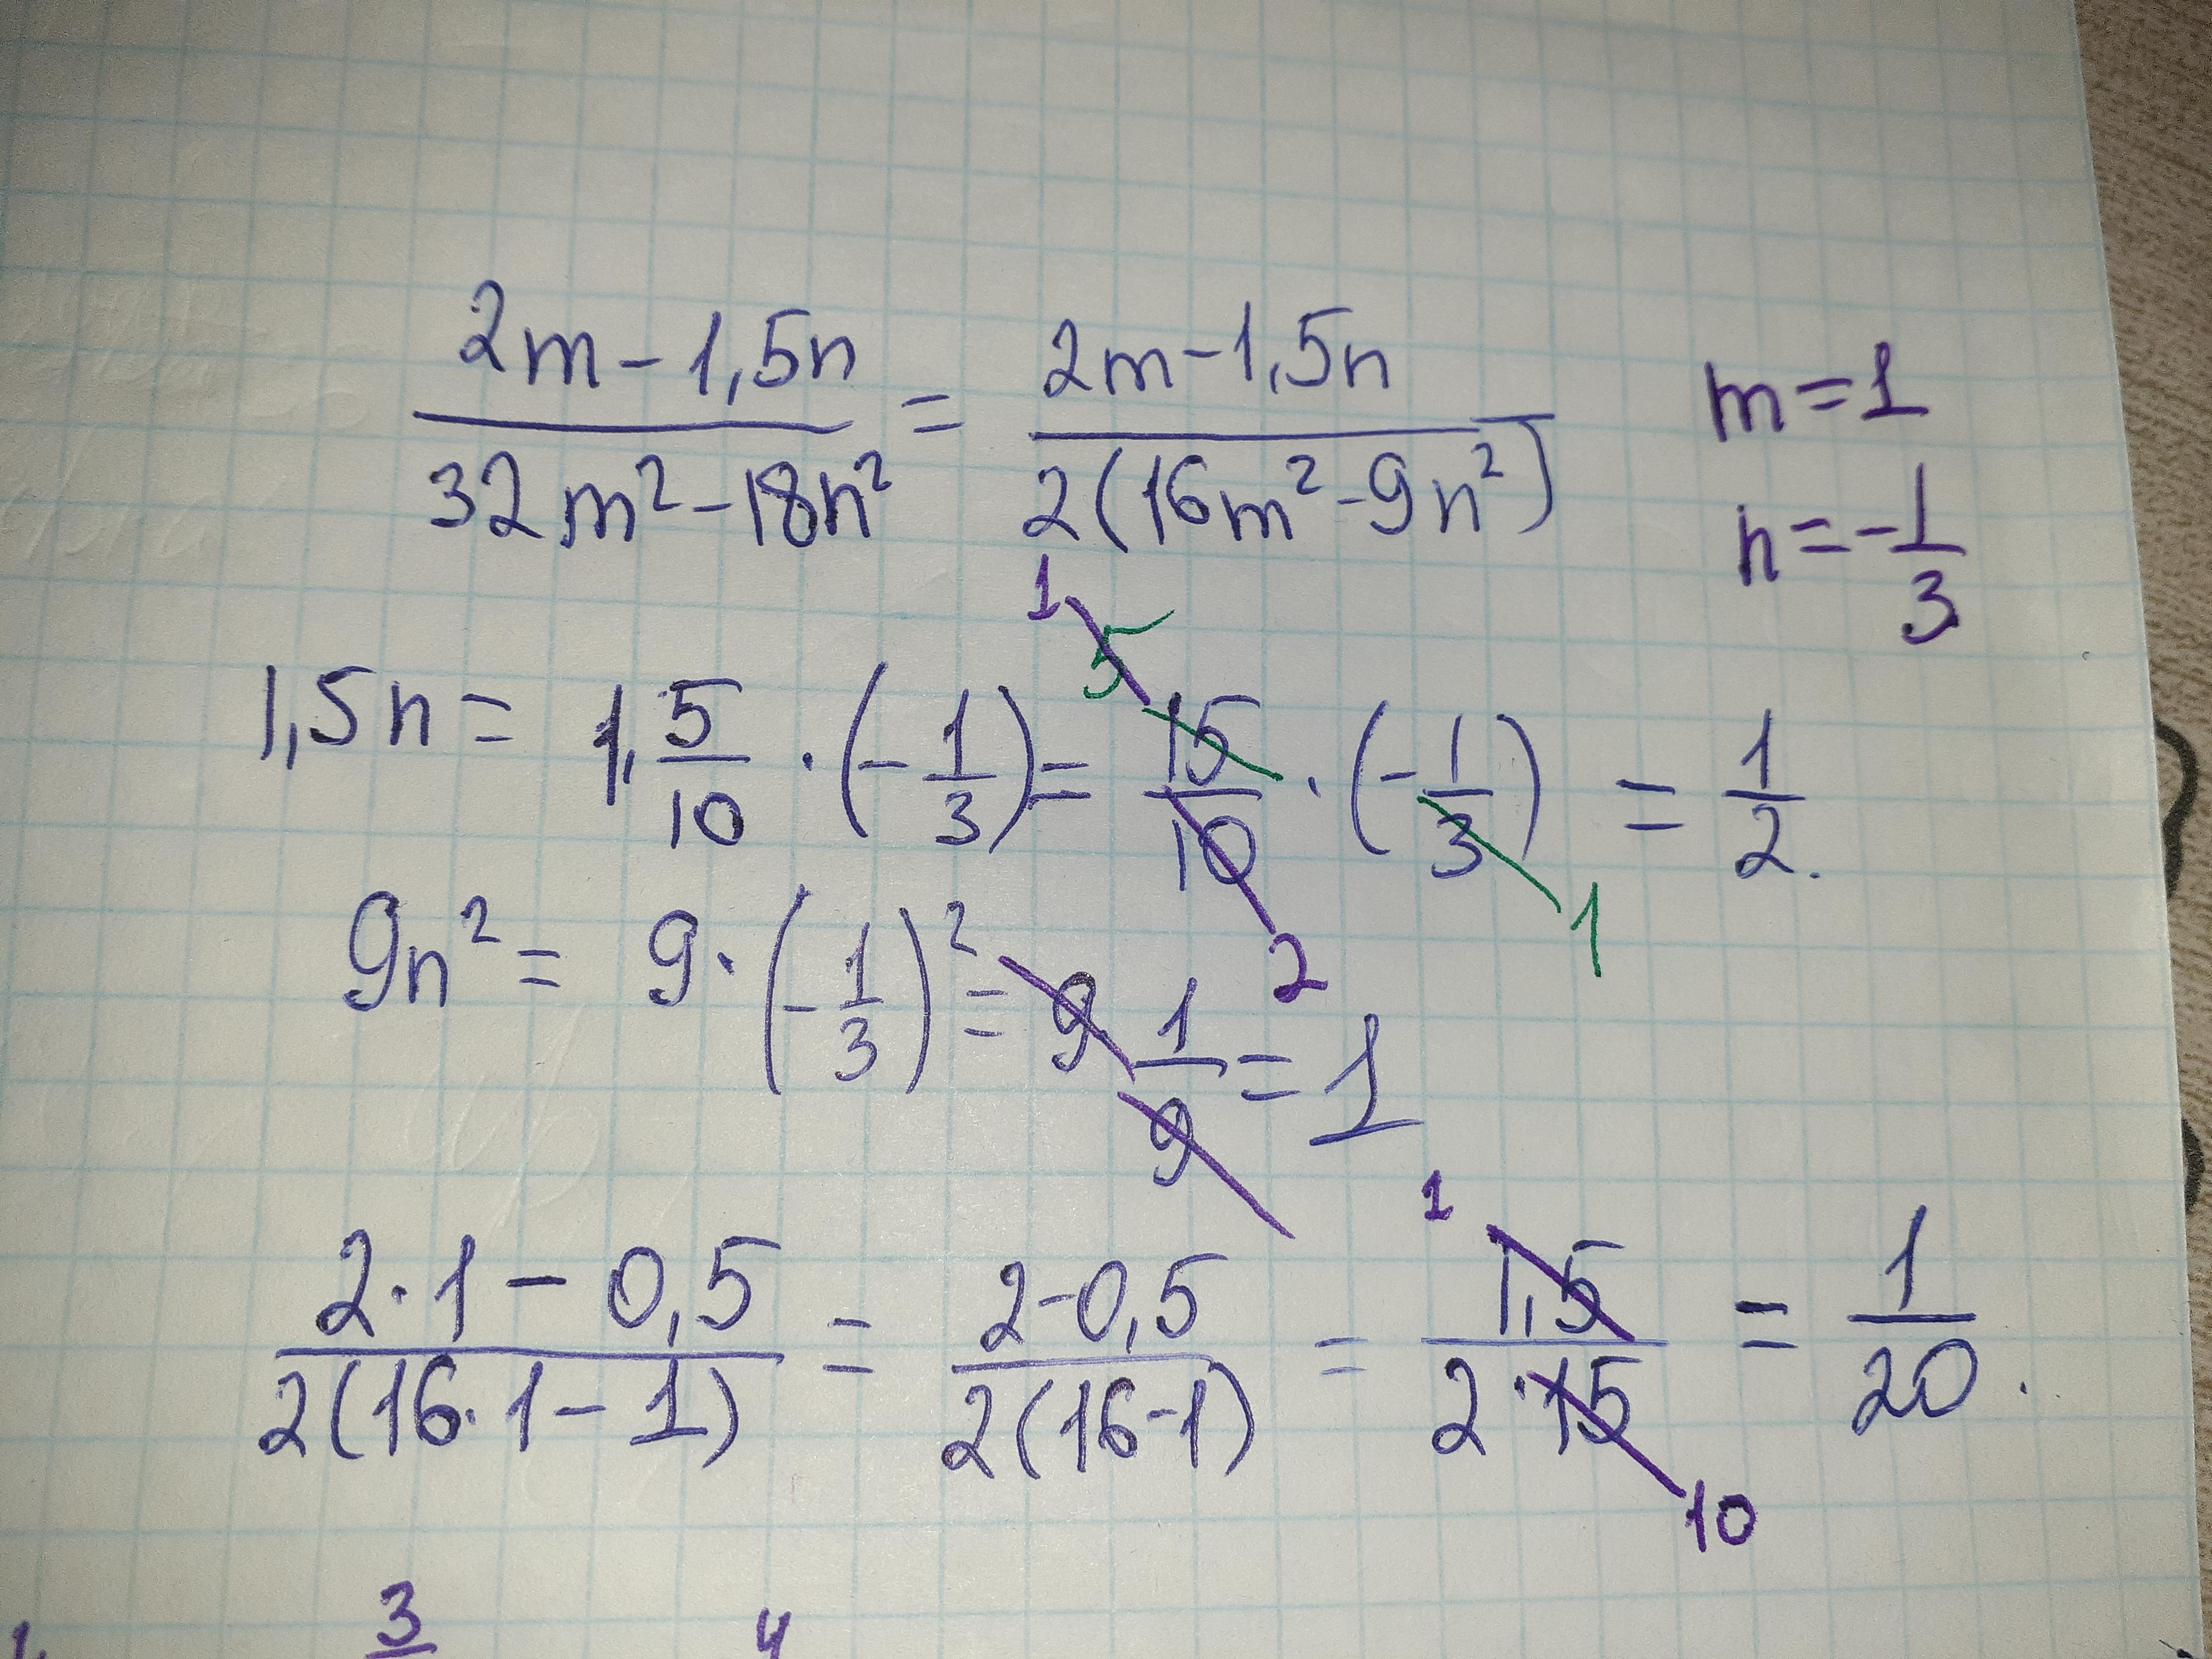 (2m-1,5n)/(32m²-18n²) = (2m-1,5n)/(2(16m²-9n²)) m=1
n=-1/3
1,5n = 1,5/10 · (-1/3) = 15/10 · (-1/3) = 1/2.
1 5
2 1
9n² = 9·(-1/3)² = 9 1/9 = 1
(2·1-0,5)/(2(16·1-1)) = (2-0,5)/(2(16-1)) = 1,5/(2·15) = 1/20.
1
10
3 4